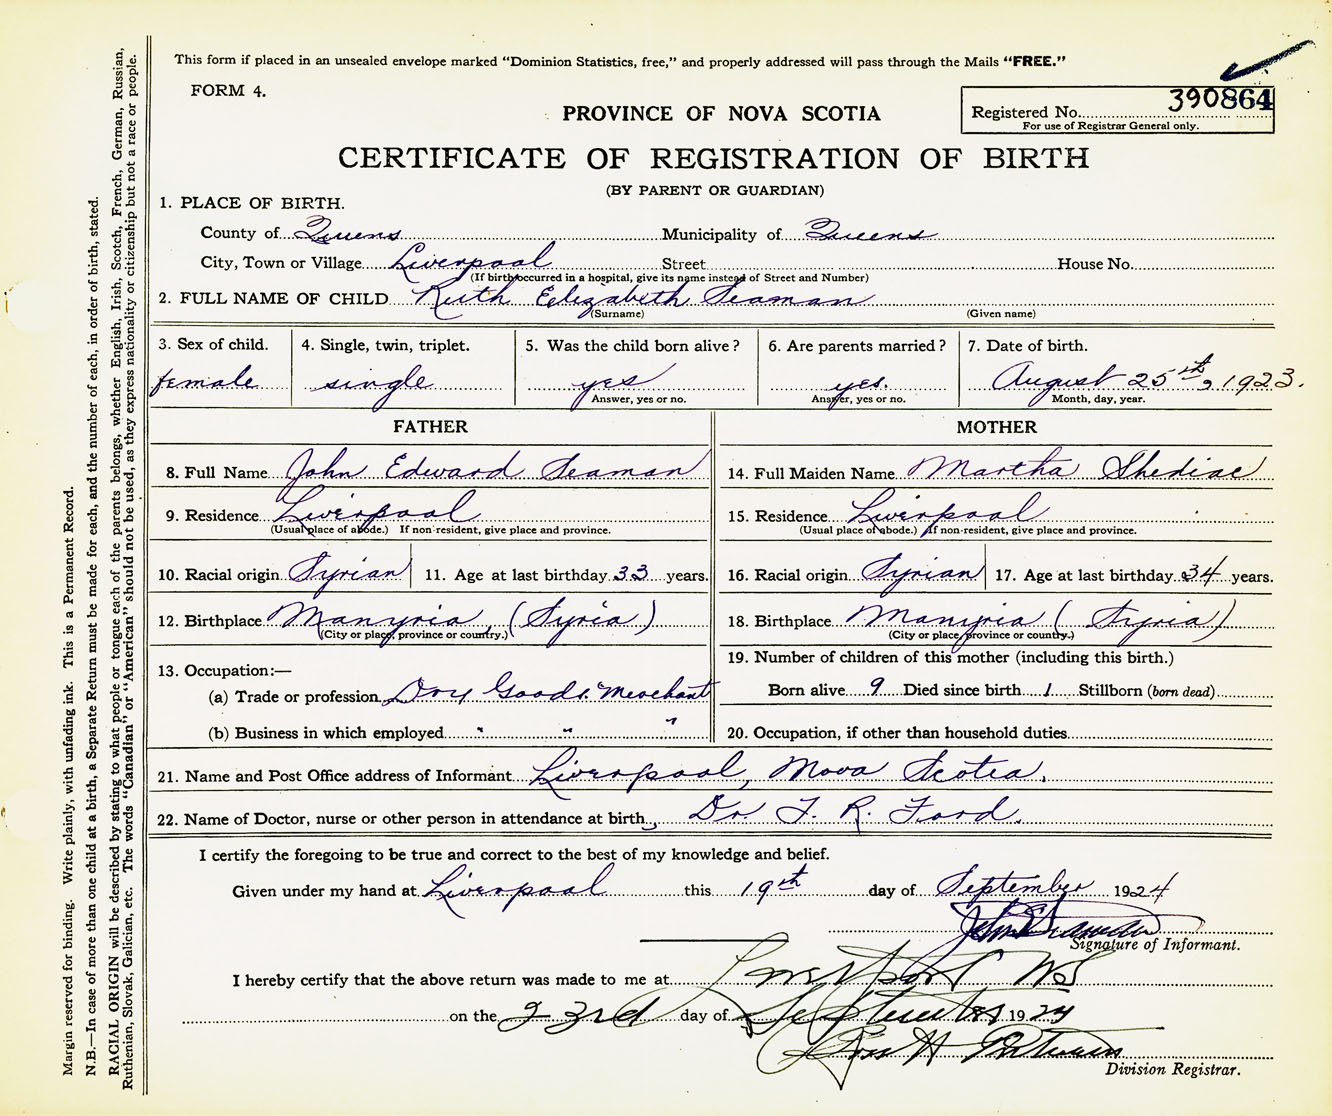 This form if placed in an unsealed envelope marked "Dominion Statistics, free," and properly addressed will pass through the Mails "FREE."
FORM 4.
PROVINCE OF NOVA SCOTIA
Registered No. 390864
For use of Registrar General only.
CERTIFICATE OF REGISTRATION OF BIRTH
(BY PARENT OR GUARDIAN)
1. PLACE OF BIRTH.
County of Queens Municipality of Queens
City, Town or Village Liverpool Street House No.
(If birth occurred in a hospital, give its name instead of Street and Number)
2. FULL NAME OF CHILD Ruth Elizabeth Seaman
(Surname) (Given name)
3. Sex of child. 4. Single, twin, triplet. 5. Was the child born alive? 6. Are parents married? 7. Date of birth.
female single yes yes. August 25th, 1923.
Answer, yes or no. Answer, yes or no. Month, day, year.
FATHER MOTHER
8. Full Name John Edward Seaman 14. Full Maiden Name Martha Shediac
9. Residence Liverpool 15. Residence Liverpool
(Usual place of abode.) If non-resident, give place and province. (Usual place of abode.) If non-resident, give place and province.
10. Racial origin Syrian 11. Age at last birthday 33 years. 16. Racial origin Syrian 17. Age at last birthday 34 years.
12. Birthplace (Syria) 18. Birthplace (Syria)
(City or place, province or country.) (City or place, province or country.)
13. Occupation:— 19. Number of children of this mother (including this birth.)
(a) Trade or profession Dry Goods Merchant Born alive 9 Died since birth 1 Stillborn (born dead)
(b) Business in which employed " " " 20. Occupation, if other than household duties
21. Name and Post Office address of Informant Liverpool, Nova Scotia.
22. Name of Doctor, nurse or other person in attendance at birth, Dr. F. R. Ford.
I certify the foregoing to be true and correct to the best of my knowledge and belief.
Given under my hand at Liverpool this 19th day of September 1924
John E Seaman
Signature of Informant.
I hereby certify that the above return was made to me at Liverpool NS
on the 23rd day of September 1924
Division Registrar.
Margin reserved for binding. Write plainly, with unfading ink. This is a Permanent Record.
N.B.—In case of more than one child at a birth, a Separate Return must be made for each, and the number of each, in order of birth, stated.
RACIAL ORIGIN will be described by stating to what people or tongue each of the parents belongs, whether English, Irish, Scotch, French, German, Russian,
Ruthenian, Slovak, Galician, etc. The words "Canadian" or "American" should not be used, as they express nationality or citizenship but not a race or people.